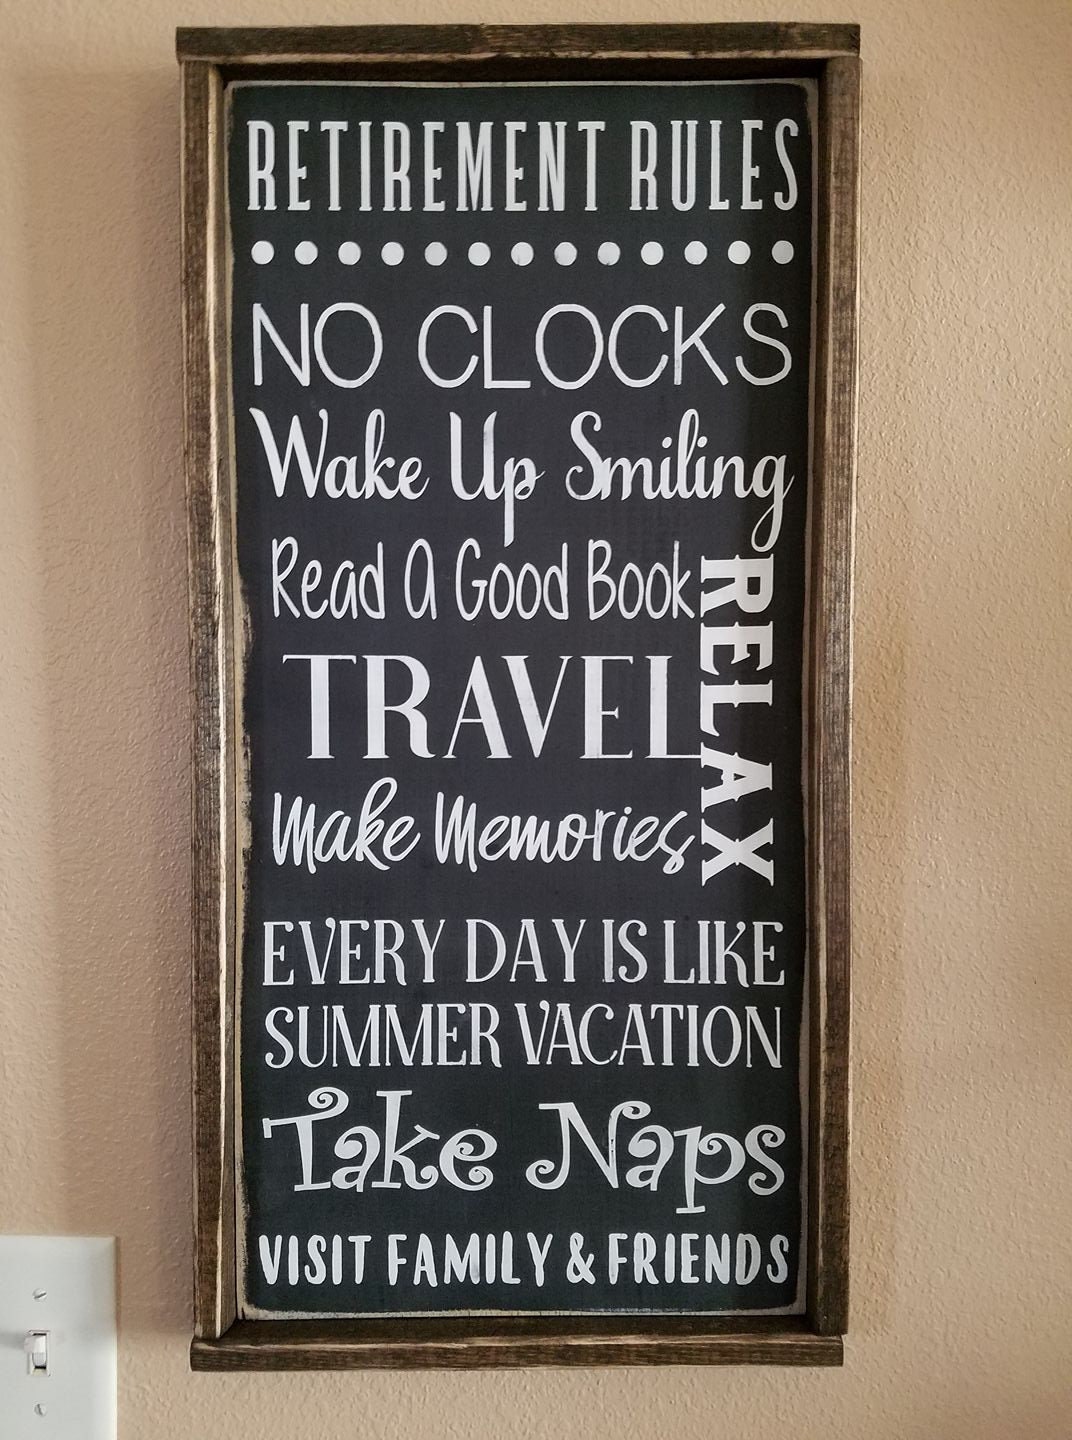 RETIREMENT RULES
NO CLOCKS
Wake Up Smiling
Read A Good Book
RELAX
TRAVEL
Make Memories
EVERY DAY IS LIKE
SUMMER VACATION
Take Naps
VISIT FAMILY & FRIENDS